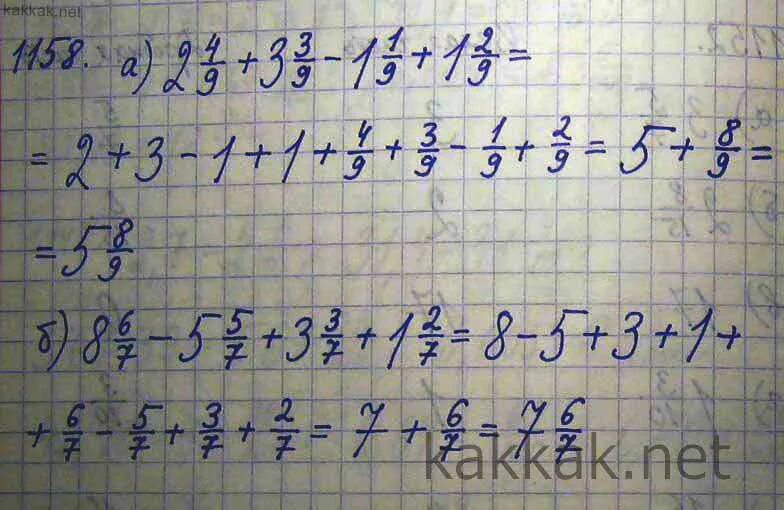 kakkak.net
1158. а) 2 4/9 + 3 3/9 - 1 1/9 + 1 2/9 =
= 2 + 3 - 1 + 1 + 4/9 + 3/9 - 1/9 + 2/9 = 5 + 8/9 =
= 5 8/9
б) 8 6/7 - 5 5/7 + 3 3/7 + 1 2/7 = 8 - 5 + 3 + 1 +
+ 6/7 - 5/7 + 3/7 + 2/7 = 7 + 6/7 = 7 6/7
kakkak.net